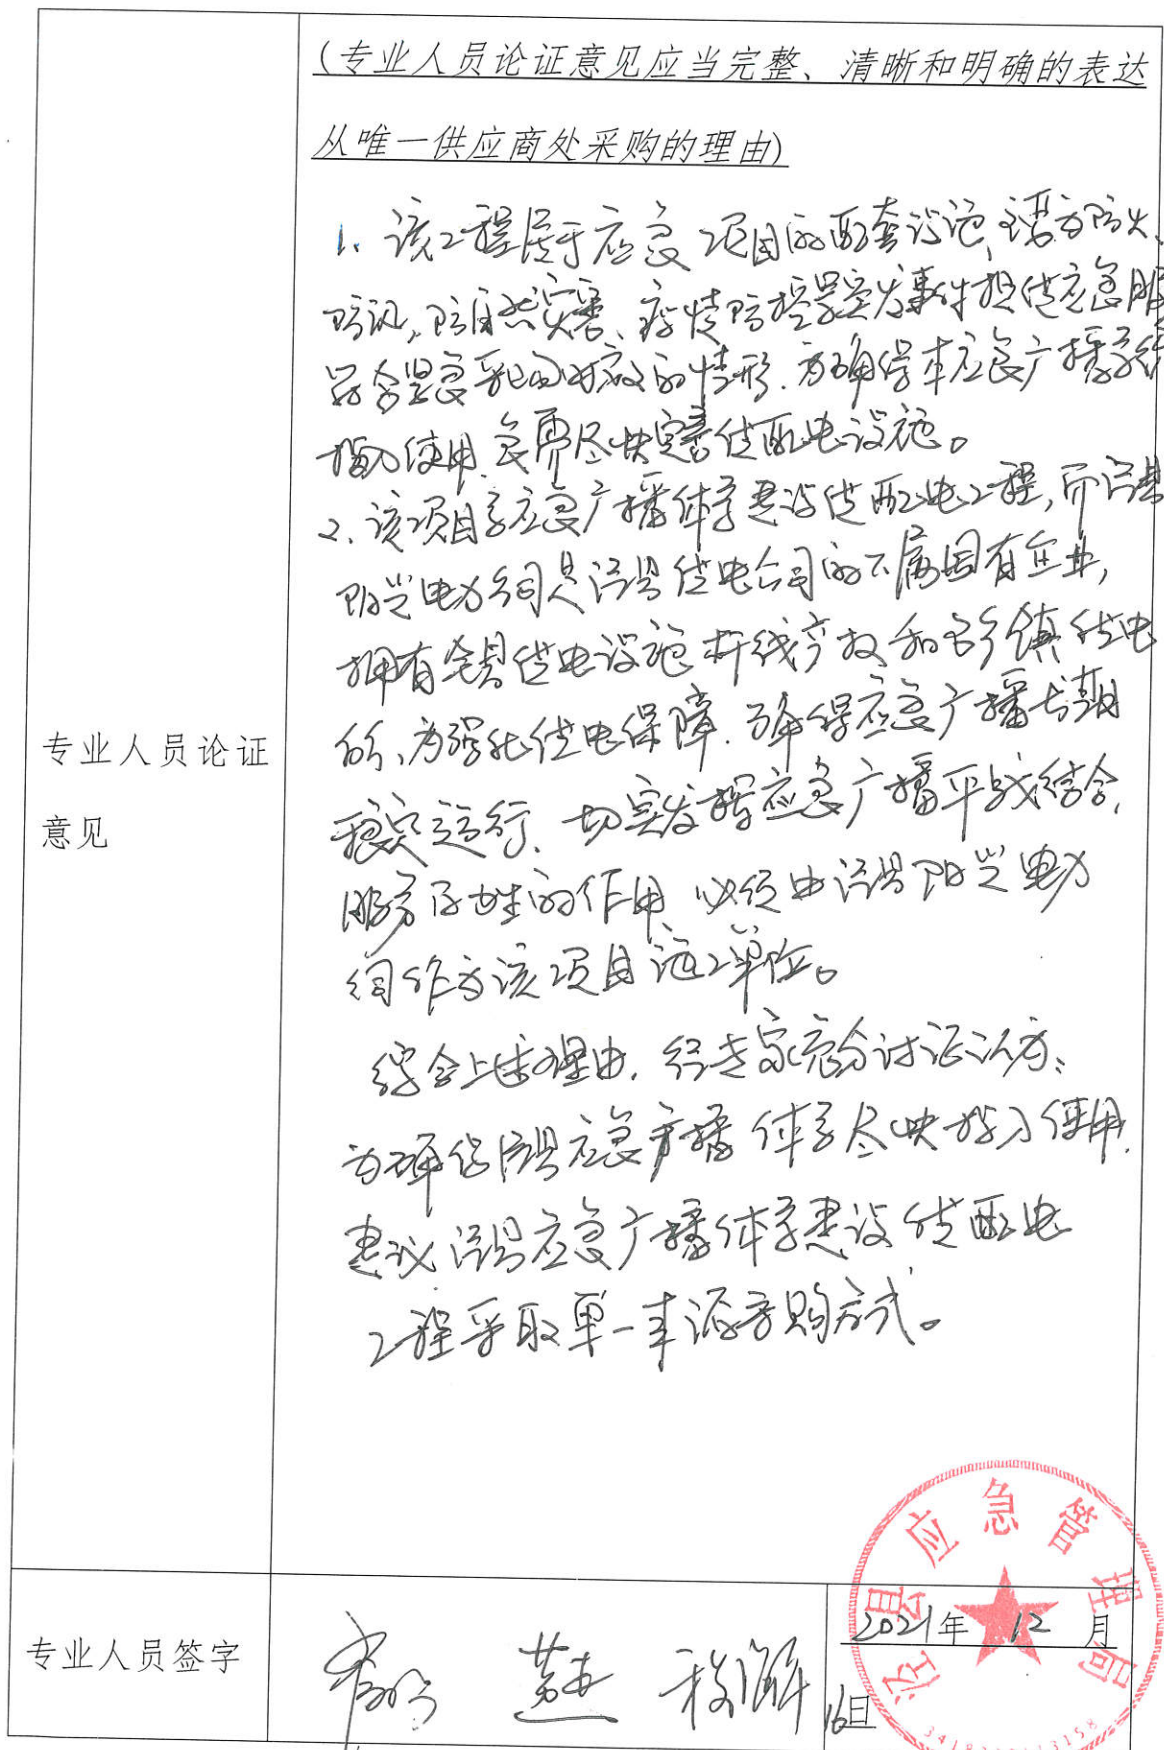 (专业人员论证意见应当完整、清晰和明确的表达
从唯一供应商处采购的理由)
1、该工程属于应急项目的配套设施,主要为防火、
防汛、防自然灾害、疫情防控等突发事件提供应急服
符合紧急采购对应的情形.为确保本应急广播系统
投入使用,急需尽快完善供配电设施。
2、该项目系应急广播体系建设供配电工程,而泾县
阳光电力公司是泾县供电公司的下属国有企业,
拥有全县供电设施杆线产权和各乡镇供电
所、为强化供电保障.确保应急广播长期
稳定运行、切实发挥应急广播平战结合,
服务百姓的作用,必须由泾县阳光电力
公司作为该项目施工单位。
综合上述理由,经专家充分讨论认为:
为确保泾县应急广播体系尽快投入使用,
建议泾县应急广播体系建设供配电
工程采取单一来源采购方式。
专业人员论证
意见
专业人员签字
2021年 12 月
16日
泾县应急管理局